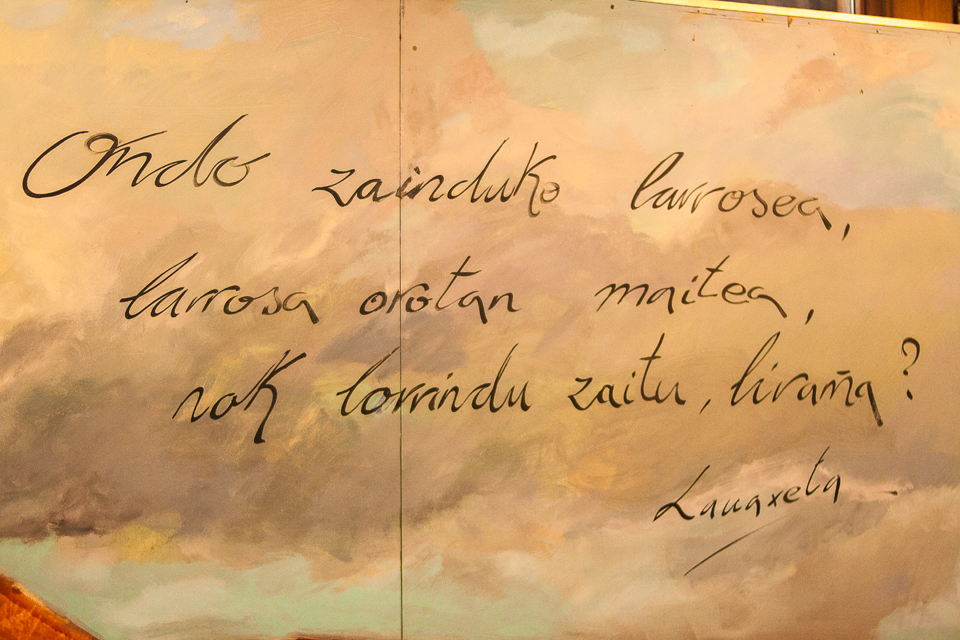 Ondo zainduko larrosea,
larrosa orotan maitea,
nok lorrindu zaitu, liraña?
Lauaxeta